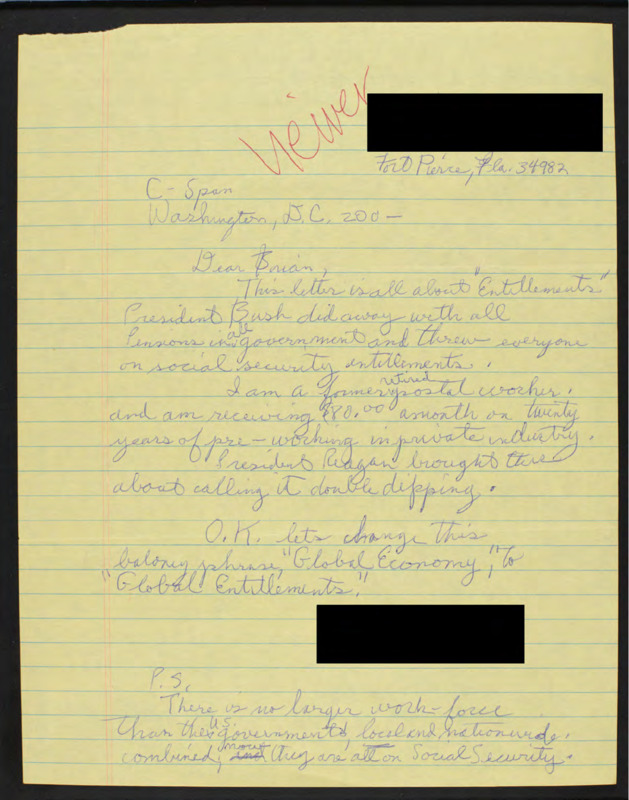 Viewer
Fort Pierce, Fla. 34982
C-Span
Washington, D.C. 200-
Dear Brian,
This letter is all about "Entitlements"
President Bush did away with all
Pensions in all government and threw everyone
on social security entitlements.
I am a former retired postal worker.
and am receiving $80.00 a month on twenty
years of pre-working in private industry.
President Reagan brought this
about calling it double dipping.
O.K. lets change this
baloney phrase, "Global Economy", to
"Global Entitlements."
P.S.
There is no larger work-force
than the U.S. governments, local and nationwide.
combined, and now they are all on Social Security.